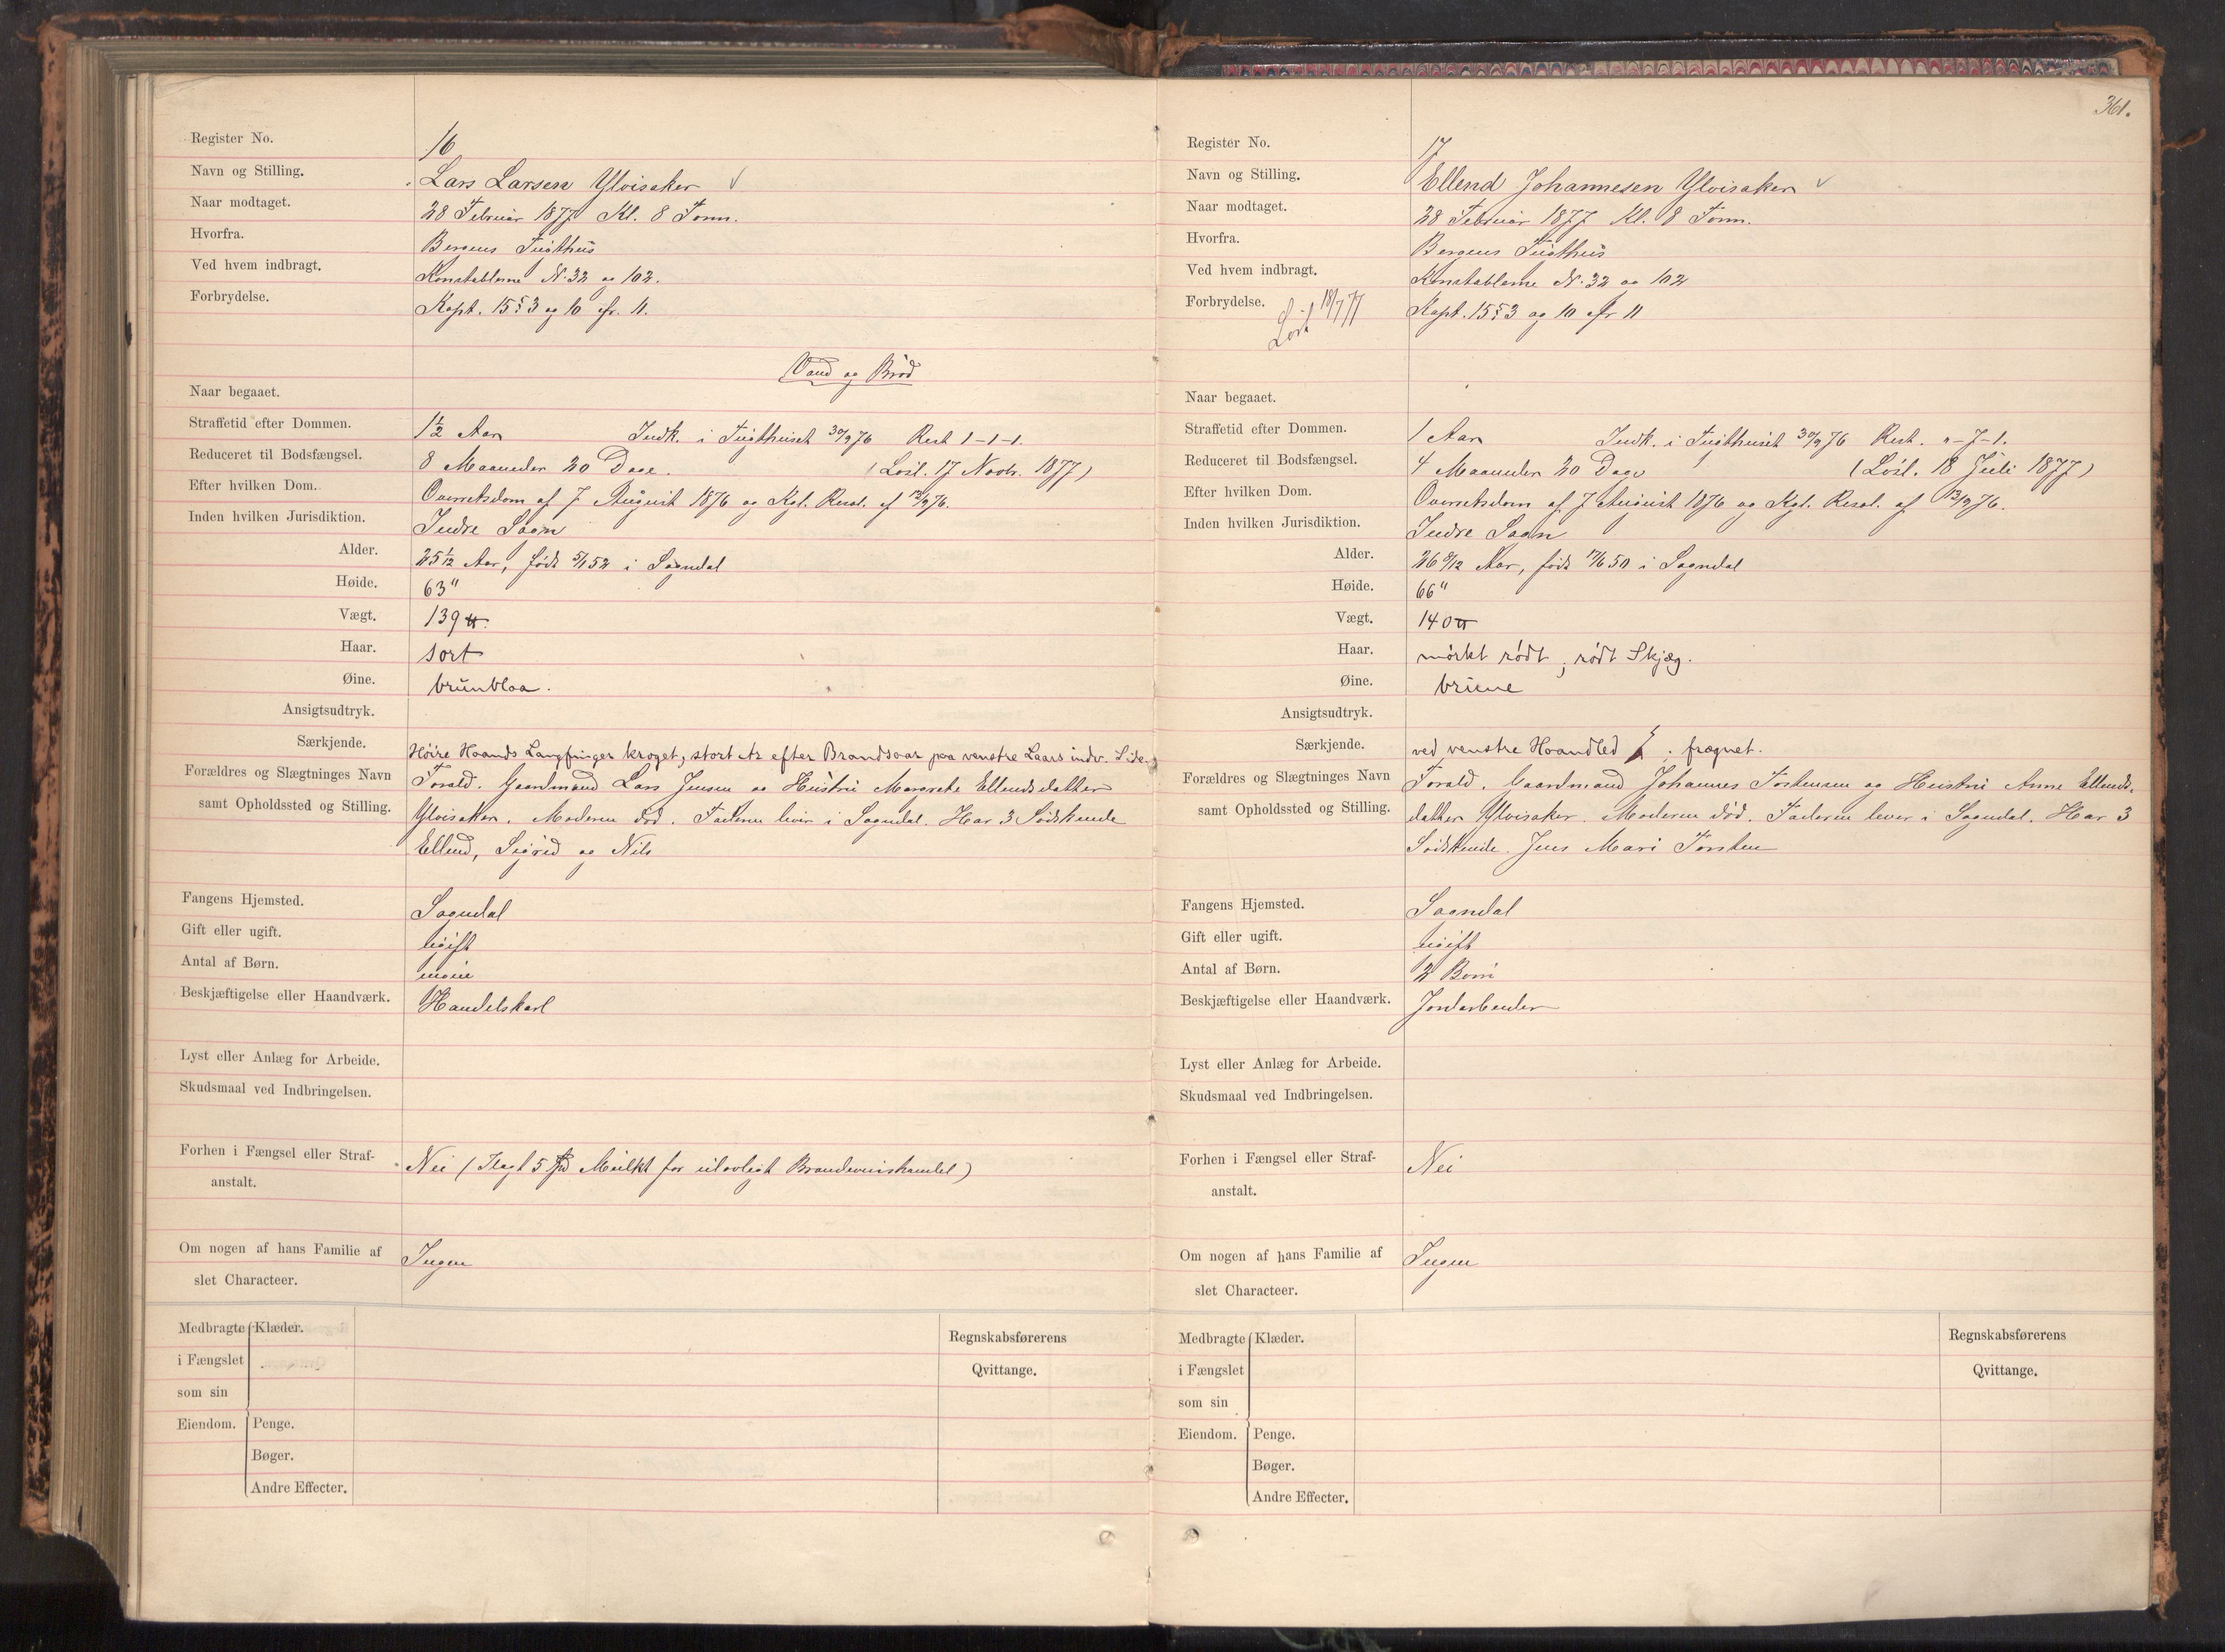 Register No. 16
Navn og Stilling. Lars Larsen Ylvisaker
Naar modtaget. 28 Februar 1877 Kl. 8 Form.
Hvorfra. Bergens Tugthus
Ved hvem indbragt. Konstablerne N. 32 og 102.
Forbrydelse. Kapt. 15 § 3 og 10 cfr. 11.
Vand og Brød
Naar begaaet.
Straffetid efter Dommen. 1½ Aar Indk. i Tugthuset 30/9 76 Rest 1-1-1.
Reduceret til Bodsfængsel. 8 Maaneder 20 Dage. (Løsl. 17 Novbr. 1877)
Efter hvilken Dom. Overretsdom af 7 August 1876 og Kgl. Resol. af 13/9 76.
Inden hvilken Jurisdiktion. Indre Sogn
Alder. 25 1/12 Aar, født 5/1 52 i Sogndal
Høide. 63"
Vægt. 139 ℔.
Haar. sort
Øine. brunblaa.
Ansigtsudtryk.
Særkjende. Høire Haands Langfinger kroget, stort Ar efter Brandsaar paa venstre Laars indv. Side.
Forældres og Slægtninges Navn Forald. Gaardmand Lars Jensen og Hustru Margrete Ellendsdatter
samt Opholdssted og Stilling. Ylvisaker. Moderen død. Faderen lever i Sogndal. Har 3 Sødskende
Ellend, Sigrid og Nils
Fangens Hjemsted. Sogndal
Gift eller ugift. ugift
Antal af Børn. ingen
Beskjæftigelse eller Haandværk. Handelskarl
Lyst eller Anlæg for Arbeide.
Skudsmaal ved Indbringelsen.
Forhen i Fængsel eller Straf- Nei (Ilagt 5 Mulkt for ulovligt Brændevinshandel)
anstalt.
Om nogen af hans Familie af Ingen
slet Characteer.
Medbragte Klæder.
Regnskabsførerens
i Fængslet
Qvittange.
som sin
Eiendom. Penge.
Bøger.
Andre Effecter.
361.
Register No. 17
Navn og Stilling. Ellend Johannesen Ylvisaker
Naar modtaget. 28 Februar 1877 Kl. 8 Form.
Hvorfra. Bergens Tugthus
Ved hvem indbragt. Konstablerne N. 32 og 102
Forbrydelse. Kapt. 15 § 3 og 10 cfr 11
Løsl 18/7 77
Naar begaaet.
Straffetid efter Dommen. 1 Aar Indk. i Tugthuset 30/9 76 Rest. "-7-1.
Reduceret til Bodsfængsel. 4 Maaneder 20 Dage (Løsl. 18 Juli 1877)
Efter hvilken Dom. Overretsdom af 7 August 1876 og Kgl. Resol. af 13/9 76.
Inden hvilken Jurisdiktion. Indre Sogn
Alder. 26 8/12 Aar, født 17/6 50 i Sogndal
Høide. 66"
Vægt. 140 ℔
Haar. mørkt rødt, rødt Skjæg.
Øine. brune
Ansigtsudtryk.
Særkjende. ved venstre Haandled . fregnet.
Forældres og Slægtninges Navn Forald. Gaardmand Johannes Torstensen og Hustru Anne Ellends-
samt Opholdssted og Stilling. datter Ylvisaker. Moderen død. Faderen lever i Sogndal. Har 3
Sødskende. Jens Mari Torsten
Fangens Hjemsted. Sogndal
Gift eller ugift. ugift
Antal af Børn. 2 Børn
Beskjæftigelse eller Haandværk. Jordarbeider
Lyst eller Anlæg for Arbeide.
Skudsmaal ved Indbringelsen.
Forhen i Fængsel eller Straf- Nei
anstalt.
Om nogen af hans Familie af Ingen
slet Characteer.
Medbragte Klæder.
Regnskabsførerens
i Fængslet
Qvittange.
som sin
Eiendom. Penge.
Bøger.
Andre Effecter.